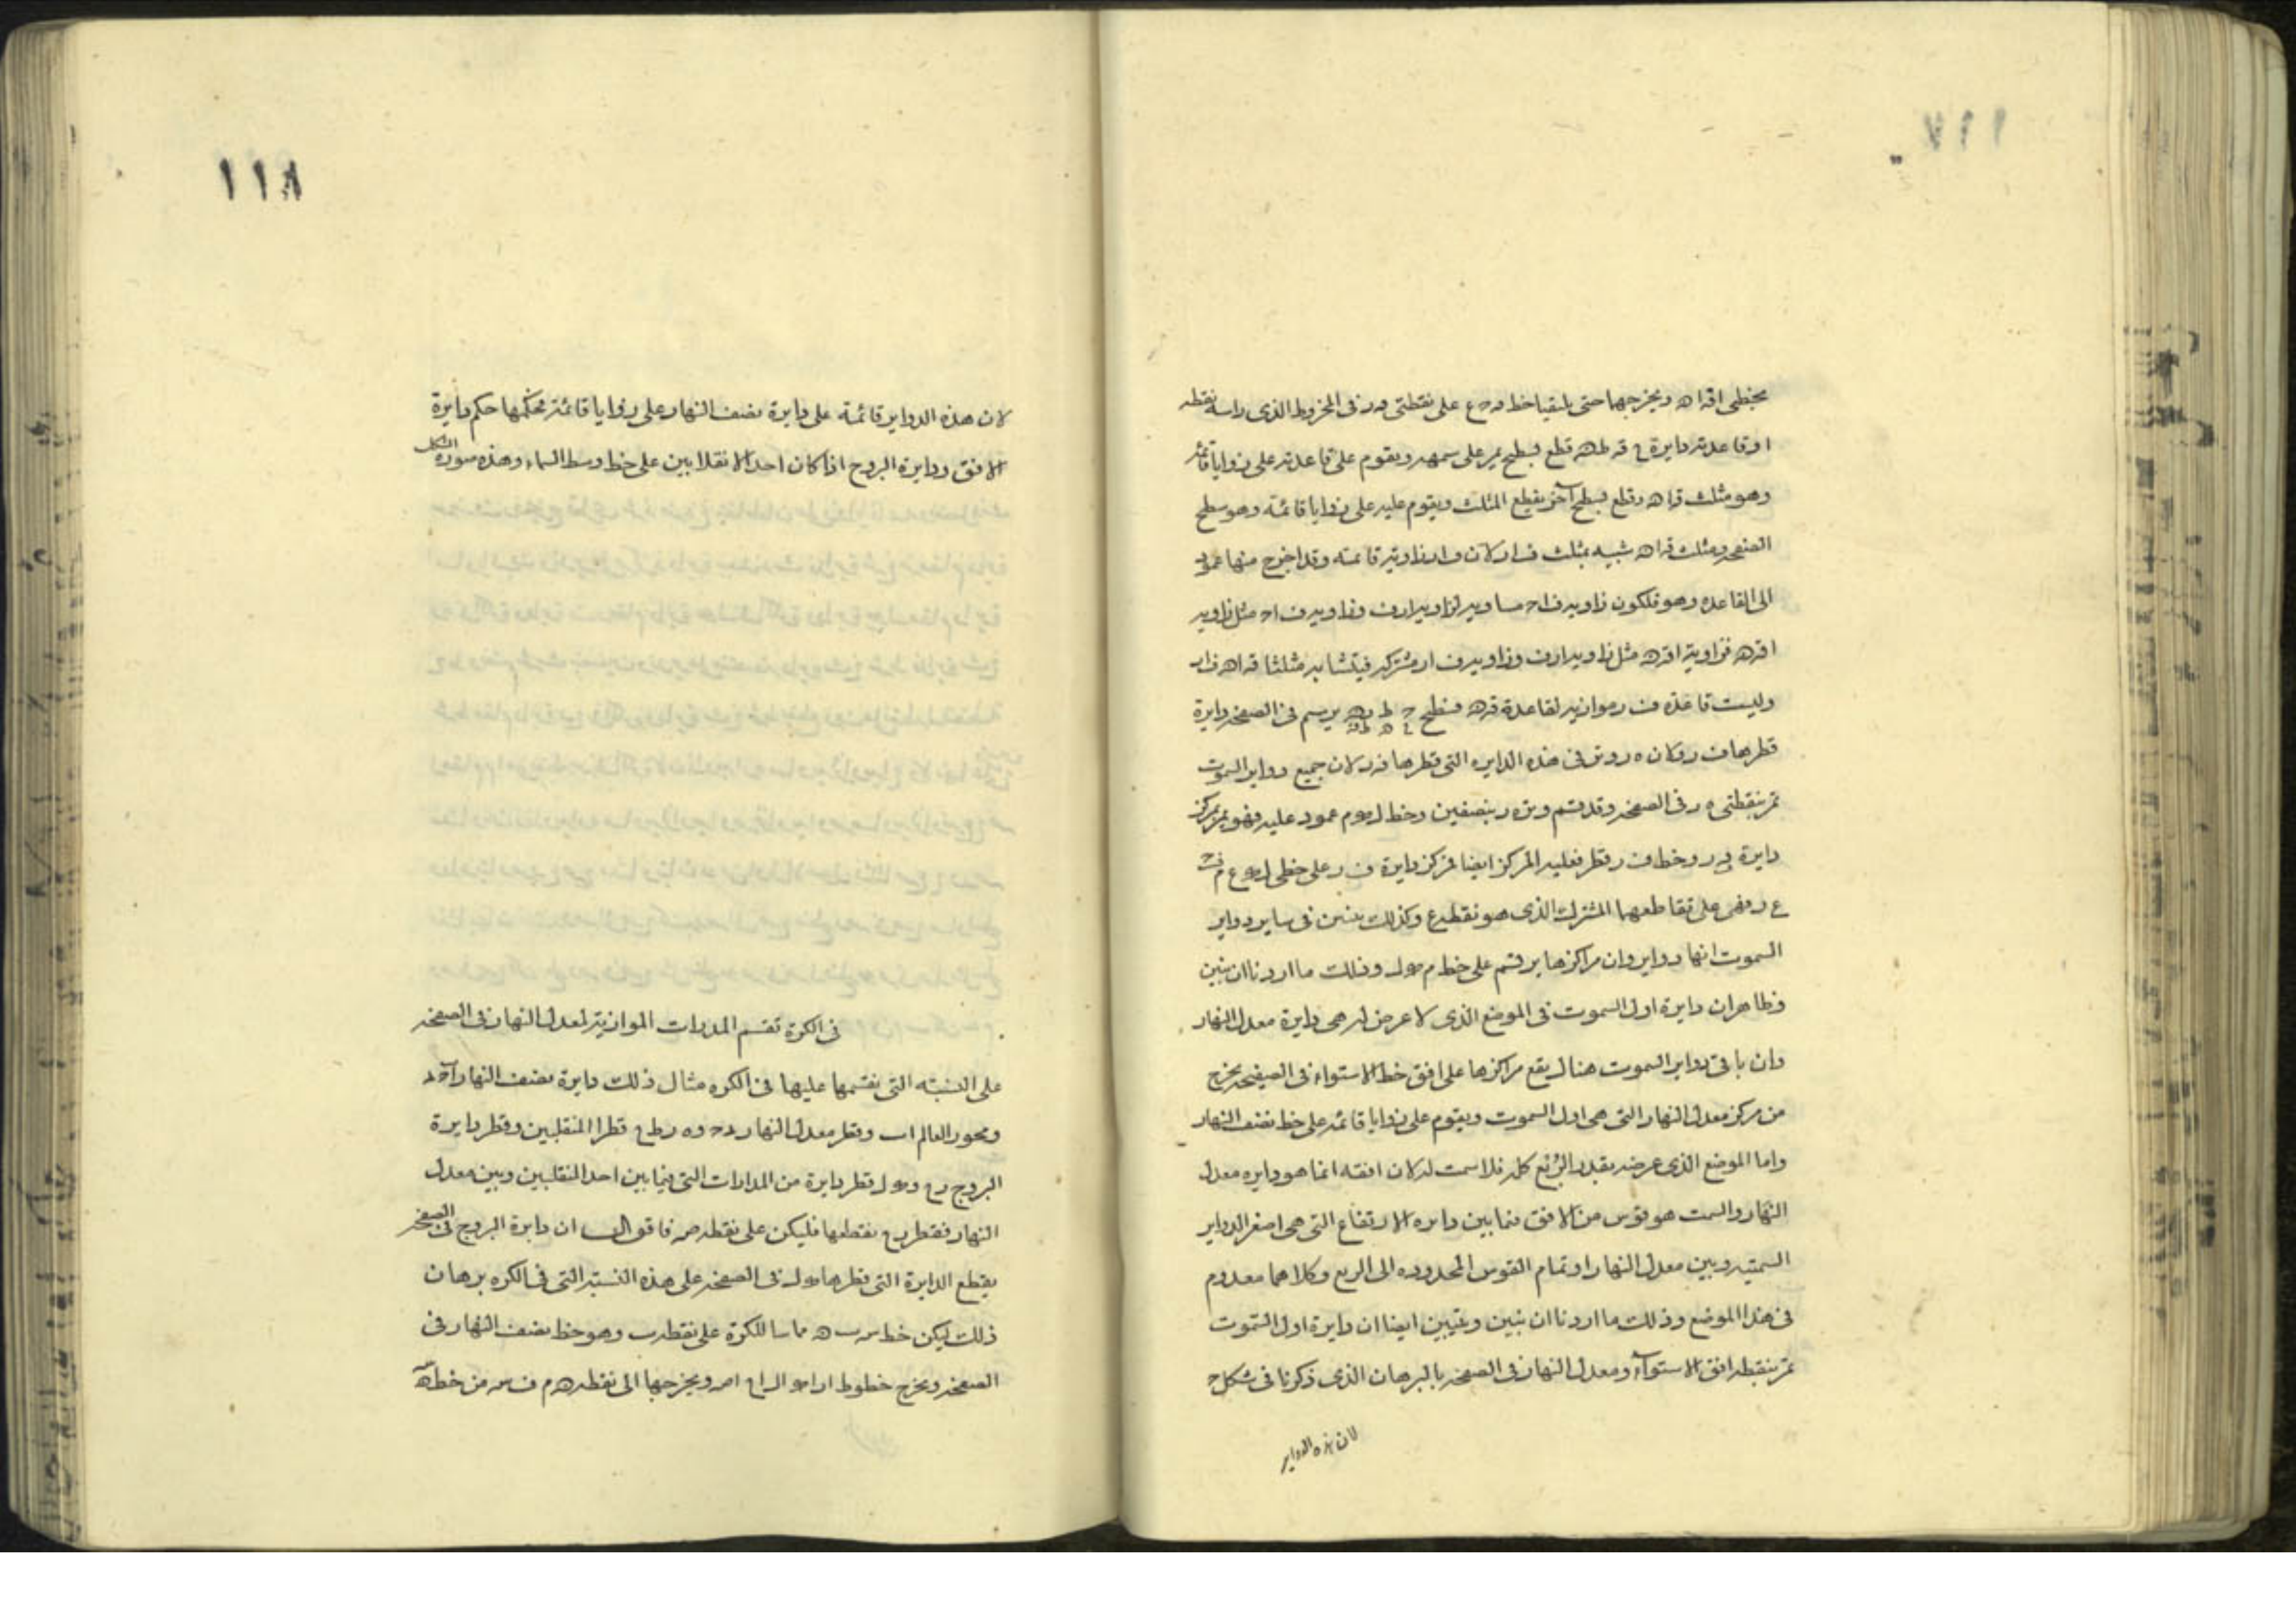 بخطى اقه اه ونخرجهما حتى يلتقيا خط ع على نقطتى ور فى المخروط الذى راسه نقطه
ا وقاعدته دايرة قطع بسطح يمر على سهمه ويقوم على قاعدته على زوايا قائمة
وهو مثلث قاه وقطع بسطح آخر يقطع المثلث ويقوم عليه على زوايا قائمة وهو سطح
الصفحه ومثلث قاه شبيه بمثلث ف ار لان زاوية قائمه وقد اخرج منها عمود
الى القاعده وهو فلكون زاويه ف اح مساويه لزاويه ارف وزاويه ف اح مثل زاويه
اقه فزاوية اقه مثل زاويه ارف وزاويه ف ار مشتركه فيتشابه مثلثا قاه ف ار
وليست قاعدة ف ر موازيه لقاعدة قه فسطح يرسم فى الصفحه دايرة
قطرها ف ر وكان فى هذه الدايره التى قطرها لان جميع دواير السموت
تمر بنقطتى فى الصفحه وقد قسم بنصفين وخط عمود عليه فهو يمر بمركز
دايرة وخط ف ر قطر فعليه المركز ايضا فمركز دايرة ف ر على خطى
ع ر فهى على تقاطعهما المشترك الذى هو نقطه ع وكذلك نبين فى ساير دواير
السموت انها دواير وان مراكزها يرتسم على خط وذلك ما اردنا ان نبين
وظاهر ان دايرة اول السموت فى الموضع الذى لا عرض له هى دايرة معدل النهار
وان باقى دواير السموت هناك يقع مراكزها على افق خط الاستواء فى الصفيحه يخرج
من مركز معدل النهار التى هى اول السموت ويقوم على زوايا قائمه على خط نصف النهار
واما الموضع الذى عرضه بقدر الربع كله فلا سمت له لان افقه انما هو دايره معدل
النهار والسمت هو قوس من الافق فيما بين دايره الارتفاع التى هى اصغر الدواير
السمتيه وبين معدل النهار او تمام القوس المحدوده الى الربع وكلاهما معدوم
فى هذا الموضع وذلك ما اردنا ان نبين ويتبين ايضا ان دايرة اول السموت
تمر بنقطه افق الاستوآء ومعدل النهار فى الصفحه بالبرهان الذى ذكرنا فى شكل ح
لان هذه الدواير
١١٨
لان هذه الدواير قائمة على دايرة نصف النهار على زوايا قائمة فحكمها حكم دايرة
الافق ودايرة البروج اذا كان احد الانقلابين على خط وسط السماء وهذه صورة الشكل
فى الكرة تقسم المدارات الموازية لمعدل النهار فى الصفحه
على النسبة التى تقسمها عليها فى الكره مثال ذلك دايرة نصف النهار
ومحور العالم اب وقطر معدل النهار قطرا المنقلبين وقطر دايرة
البروج قطر دايرة من المدارات التى فيما بين احد المنقلبين وبين معدل
النهار فقطر يقطعها فليكن على نقطه فاقول ان دايرة البروج فى الصفحه
يقطع الدايرة التى قطرها فى الصفحه على هذه النسبة التى فى الكره برهان
ذلك ليكن خط مماسا للكرة على نقطه ب وهو خط نصف النهار فى
الصفحه ونخرج خطوط ونخرجها الى نقطه من خط